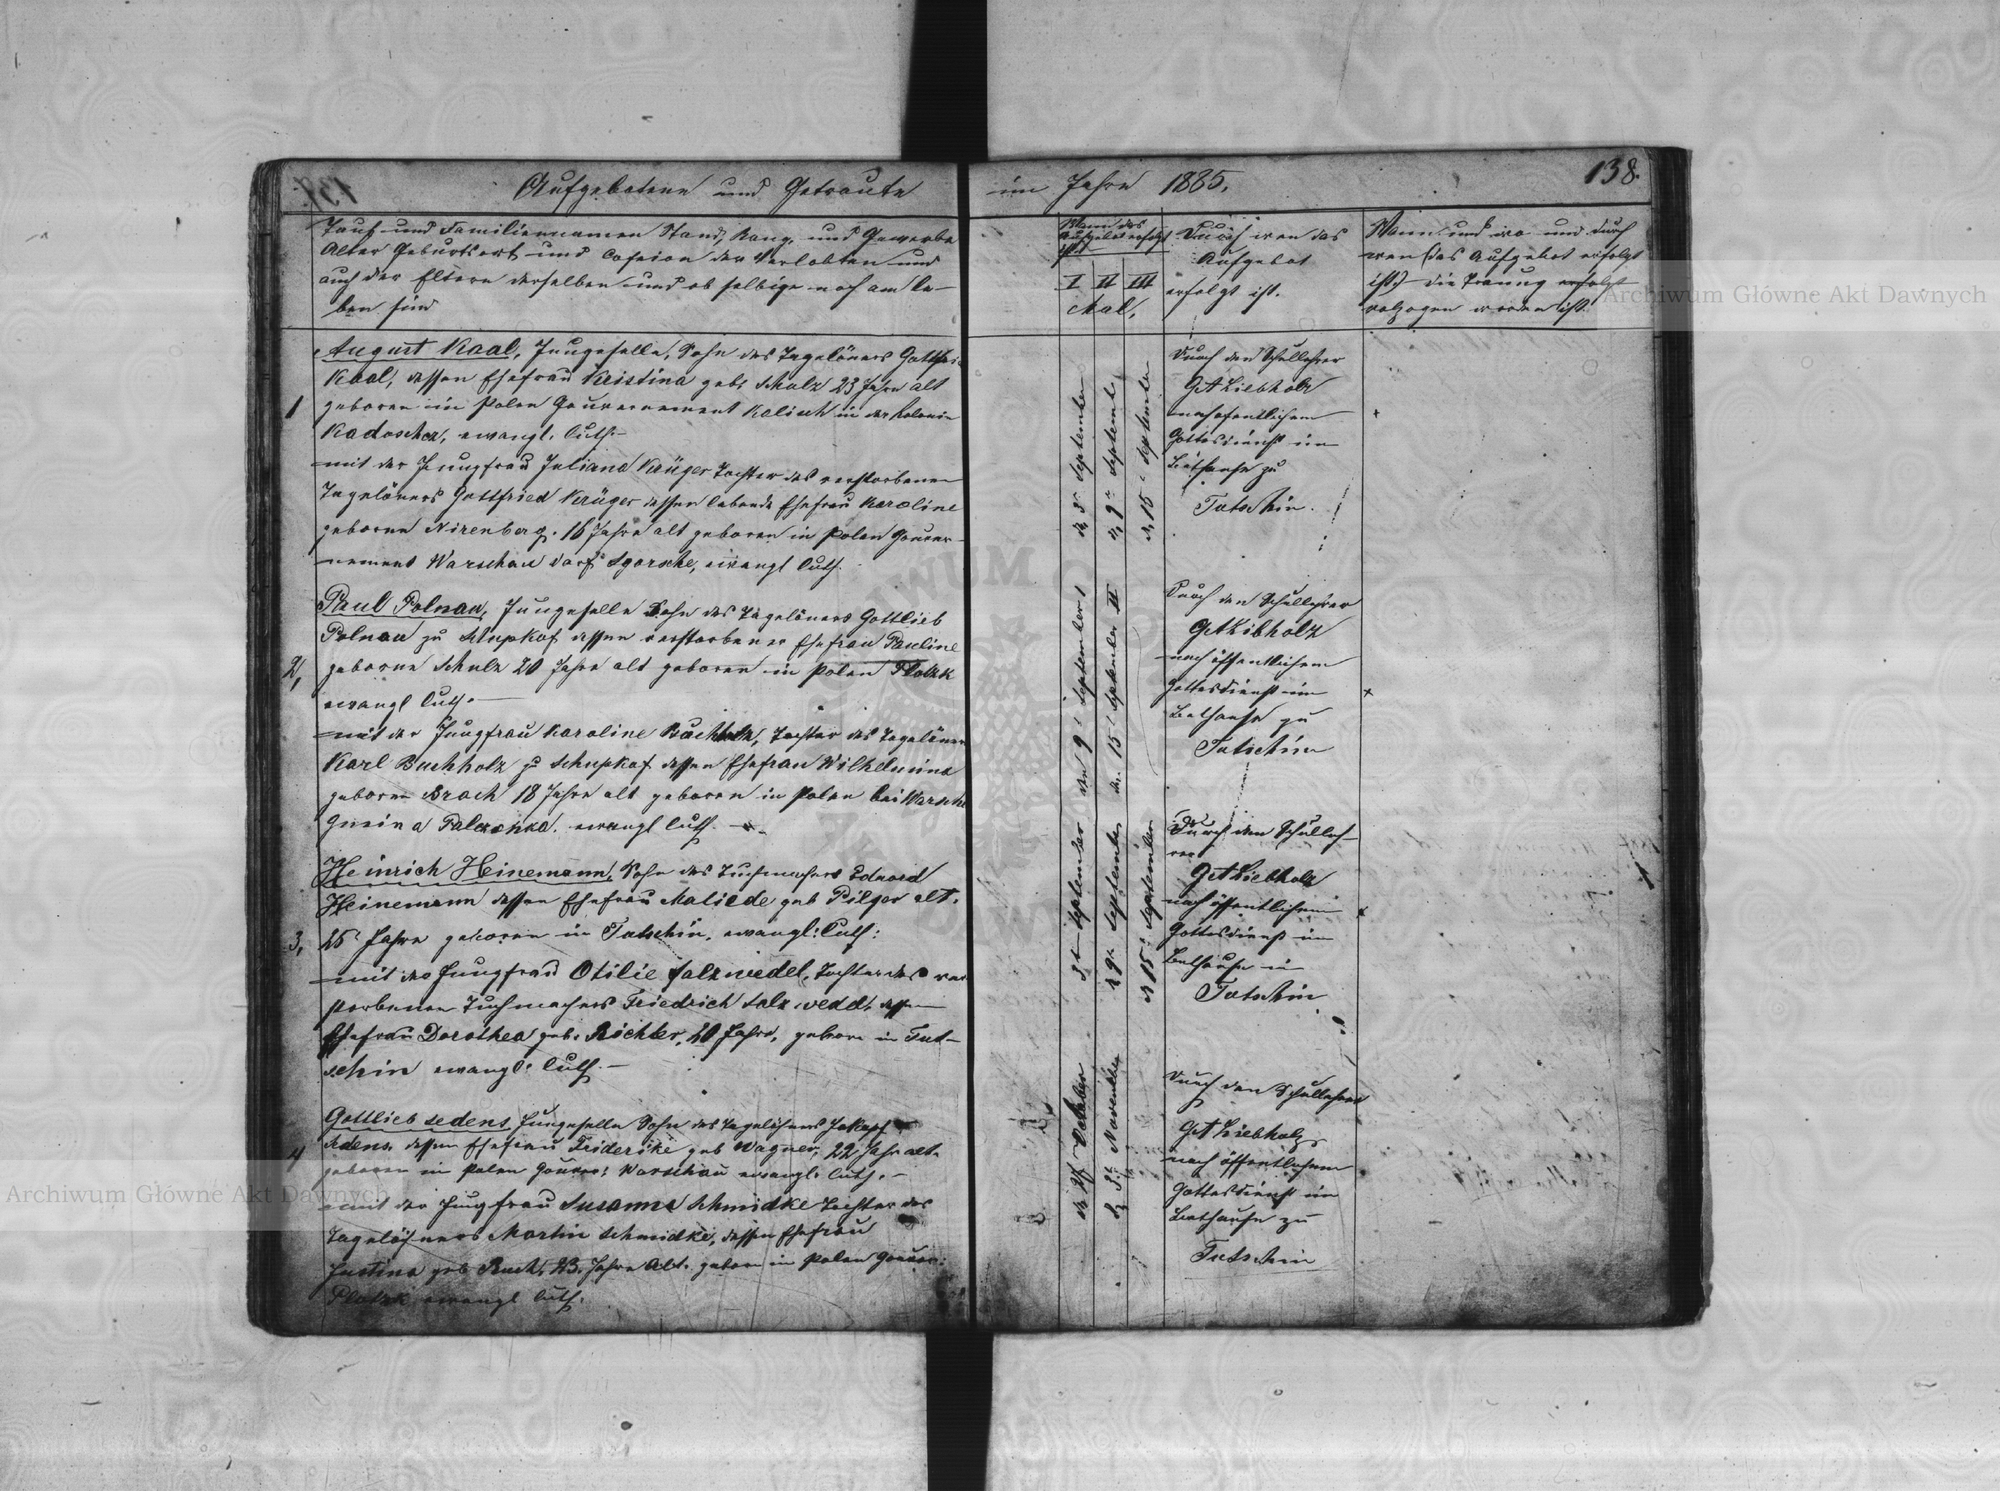 Aufgebotene und Getraute
im Jahre 1885.
138.
Tauf- und Familiennamen Stand, Rang, und Gewerbe
Alter Geburtsort und Cofesion der Verlobten und
auch der Eltern derselben und ob selbige noch am le-
ben sind
Wann das
Aufgebot erfolgt
ist
I II III
Mal,
Durch wen das
Aufgebot
erfolgt ist.
Wann und wo und durch
wen (das Aufgebot erfolgt
ist) die Trauung erfolgt
volzogen worden ist.
1
August Kaal, Jungeselle, Sohn des Tagelöners
Kaal, dessen Ehefrau Kristina geb: Schulz 23 Jahre alt
geboren in Polen Gouvernement Kalisch in der Kolonie
Kadoschez, ewangl. luth.
mit der Jungfrau Juliana Krüger Tochter des verstorbenen
Tagelöners Gottfried Krüger dessen lebende Ehefrau Karoline
geborne Nirenberg. 16 Jahre alt geboren in Polen Gouver-
nement Warschau Dorf Sgorsche, ewangl luth.
de 3 September
de 9 September
de 15 September
Durch den Schullehrer
GA Liebholz
nach ofentlichem
Gottesdienst im
Bäthause zu
Tutschin.
2,
Paul Polnau, Jungeselle Sohn des Tagelöners Gottlieb
Polnau zu Schupkof dessen verstorbener Ehefrau Pauline
geborne Schulz 20 Jahre alt geboren in Polen Plotzk
ewangl luth.
mit der Jungfrau Karoline Buchholz, Tochter des Tagelöners
Karl Buchholz zu Schupkof dessen Ehefrau Wilhelmina
geboren Brach 18 Jahre alt geboren in Polen bei Warschau
Gmina ewangl luth.
den 9 September I
den 15 September II
Durch den Schullehrer
GA Libholz
nach öffentlichem
Gottesdienst im
Bethause zu
Tutschin
3,
Heinrich Heinemann, Sohn des Tuchmachers Eduard
Heinemann dessen Ehefrau Malilde geb Pilger alt.
25 Jahre geboren in Tutschin. ewangl: luth:
mit der Jungfrau Otilie Salzwedel, Tochter des ver
storbenen Tuchmachers Friedrich Salzwedel, dessen
Ehefrau Dorothea geb. Richter, 20 Jahre, geboren in Tut-
schin ewangl: luth.
3 September
d 9 September
d 15 September
Durch den Schulleh-
rer
GA Liebholz
nach öffentlichem
Gottesdienst im
Bethause in
Tutschin
4
Gottlieb Sedens Jungeselle Sohn des Tagelöhners
Sedens. dessen Ehefrau Friderike geb Wagner, 22 Jahr alt.
geboren in Polen Gouver: Warschau ewangl. luth.
mit der Jungfrau Susanna Schmidke Tochter des
Tagelöhners Martin Schmidke, dessen Ehefrau
Justina geb Ruch, 23. Jahre Alt. geboren in Polen Gouver:
Plotzk ewangl luth.
October
November
Durch den Schullehrer
GA Liebholz
nach öffentlichem
Gottesdienst im
Bethause zu
Tutschin
Archiwum Główne Akt Dawnych
Archiwum Główne Akt Dawnych